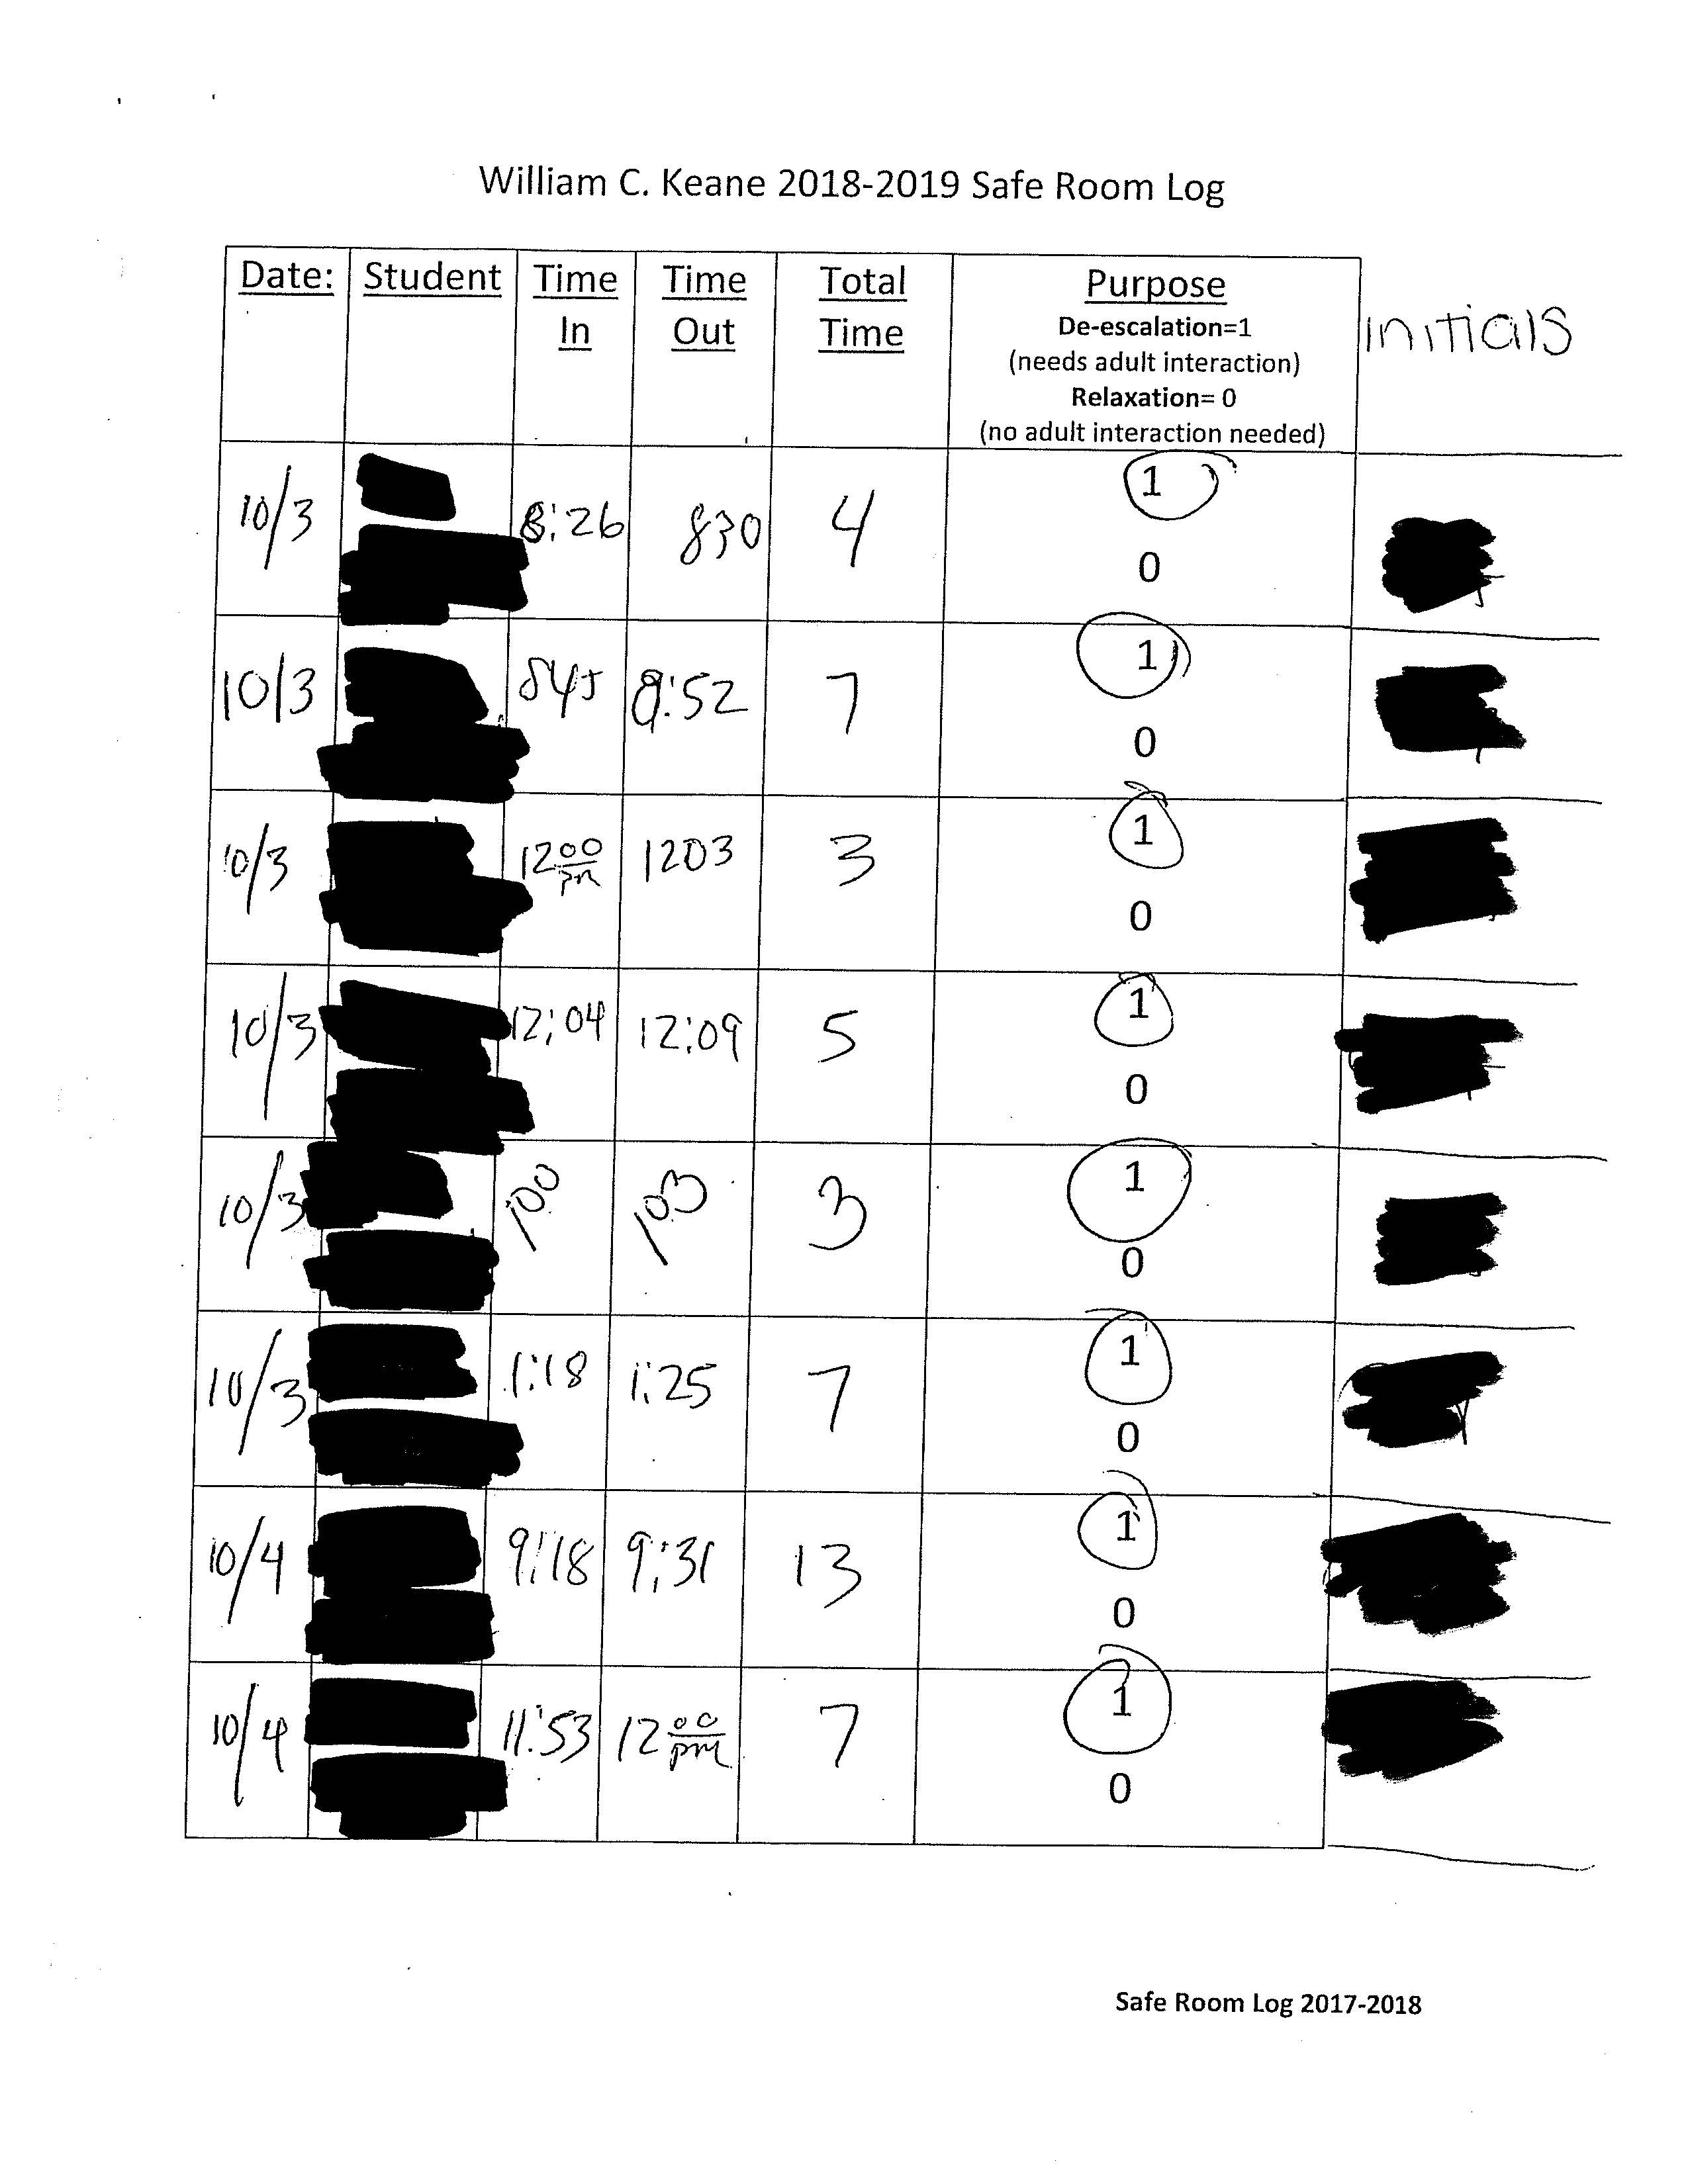 William C. Keane 2018-2019 Safe Room Log
Date: Student Time In Time Out Total Time Purpose
De-escalation=1
(needs adult interaction)
Relaxation= 0
(no adult interaction needed)
initials
10/3 8:26 830 4 1
0
10/3 845 8:52 7 1
0
10/3 12 00 pm 1203 3 1
0
10/3 12:04 12:09 5 1
0
10/3 100 103 3 1
0
10/3 1:18 1:25 7 1
0
10/4 9:18 9:31 13 1
0
10/4 11:53 12 00 pm 7 1
0
Safe Room Log 2017-2018